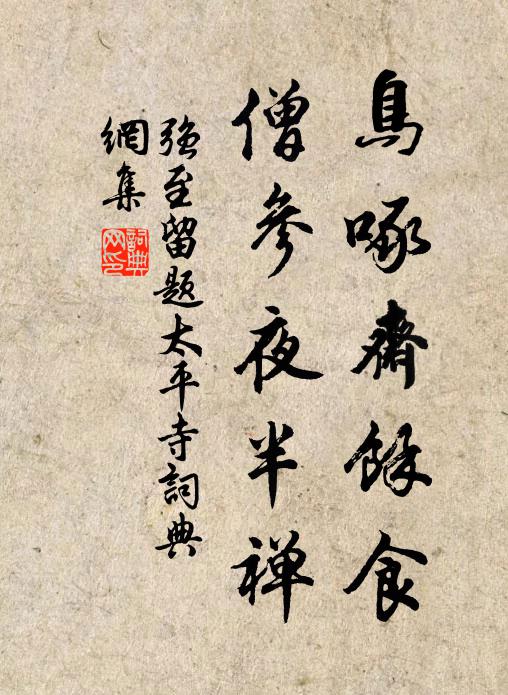 鳥啄齋餘食
僧參夜半禅
強至留題太平寺詞典
網集
詞典
网印